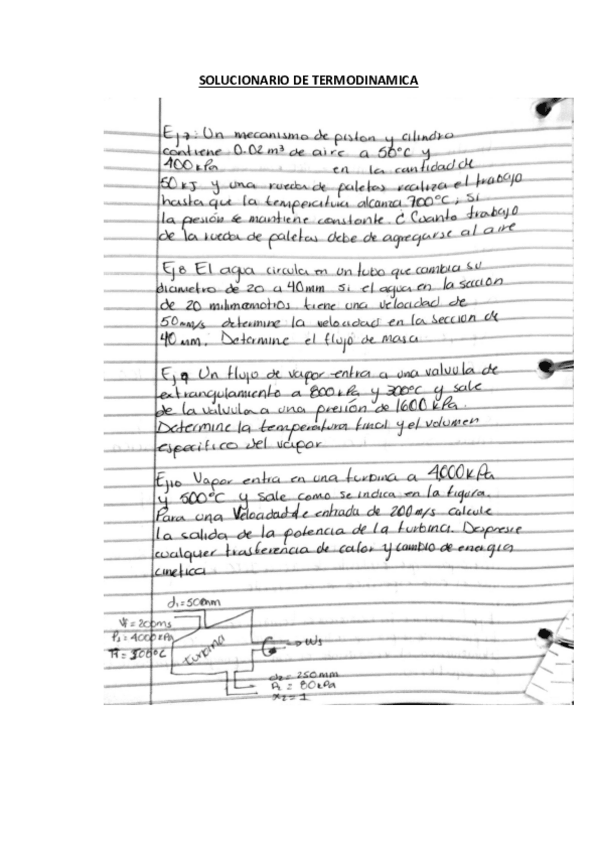 SOLUCIONARIO DE TERMODINAMICA
Ej7: Un mecanismo de piston y cilindro
contiene 0.02 m³ de aire a 50°C y
400 kPa en la cantidad de
50 kJ y una rueda de paletas realiza el trabajo
hasta que la temperatura alcanza 700°C, si
la pesión se mantiene constante. ¿ Cuanto trabajo
de la rueda de paletas debe de agregarse al aire
Ej8 El agua circula en un tubo que cambia su
diametro de 20 a 40mm si el agua en la sección
de 20 milimametros tiene una velocidad de
50 mm/s determine la velocidad en la sección de
40 mm. Determine el flujo de masa.
Ej 9 Un flujo de vapor entra a una valvula de
extrangulamiento a 800 kPa y 300°C y sale
de la valvula a una presión de 1600 kPa.
Determine la temperatura final y el volumen
especifico del vapor
Ej10 Vapor entra en una turbina a 4000 kPa
y 500°C y sale como se indica en la figura.
Para una Velocidad de entrada de 200 m/s calcule
la salida de la potencia de la turbina. Desprecie
cualquer trasferencia de calor y cambio de energia
cinetica
d1=50mm
V1=200ms
P1=4000kPa
T1=500°C
turbina
Ws
d2=250mm
P2=80kPa
x2=1